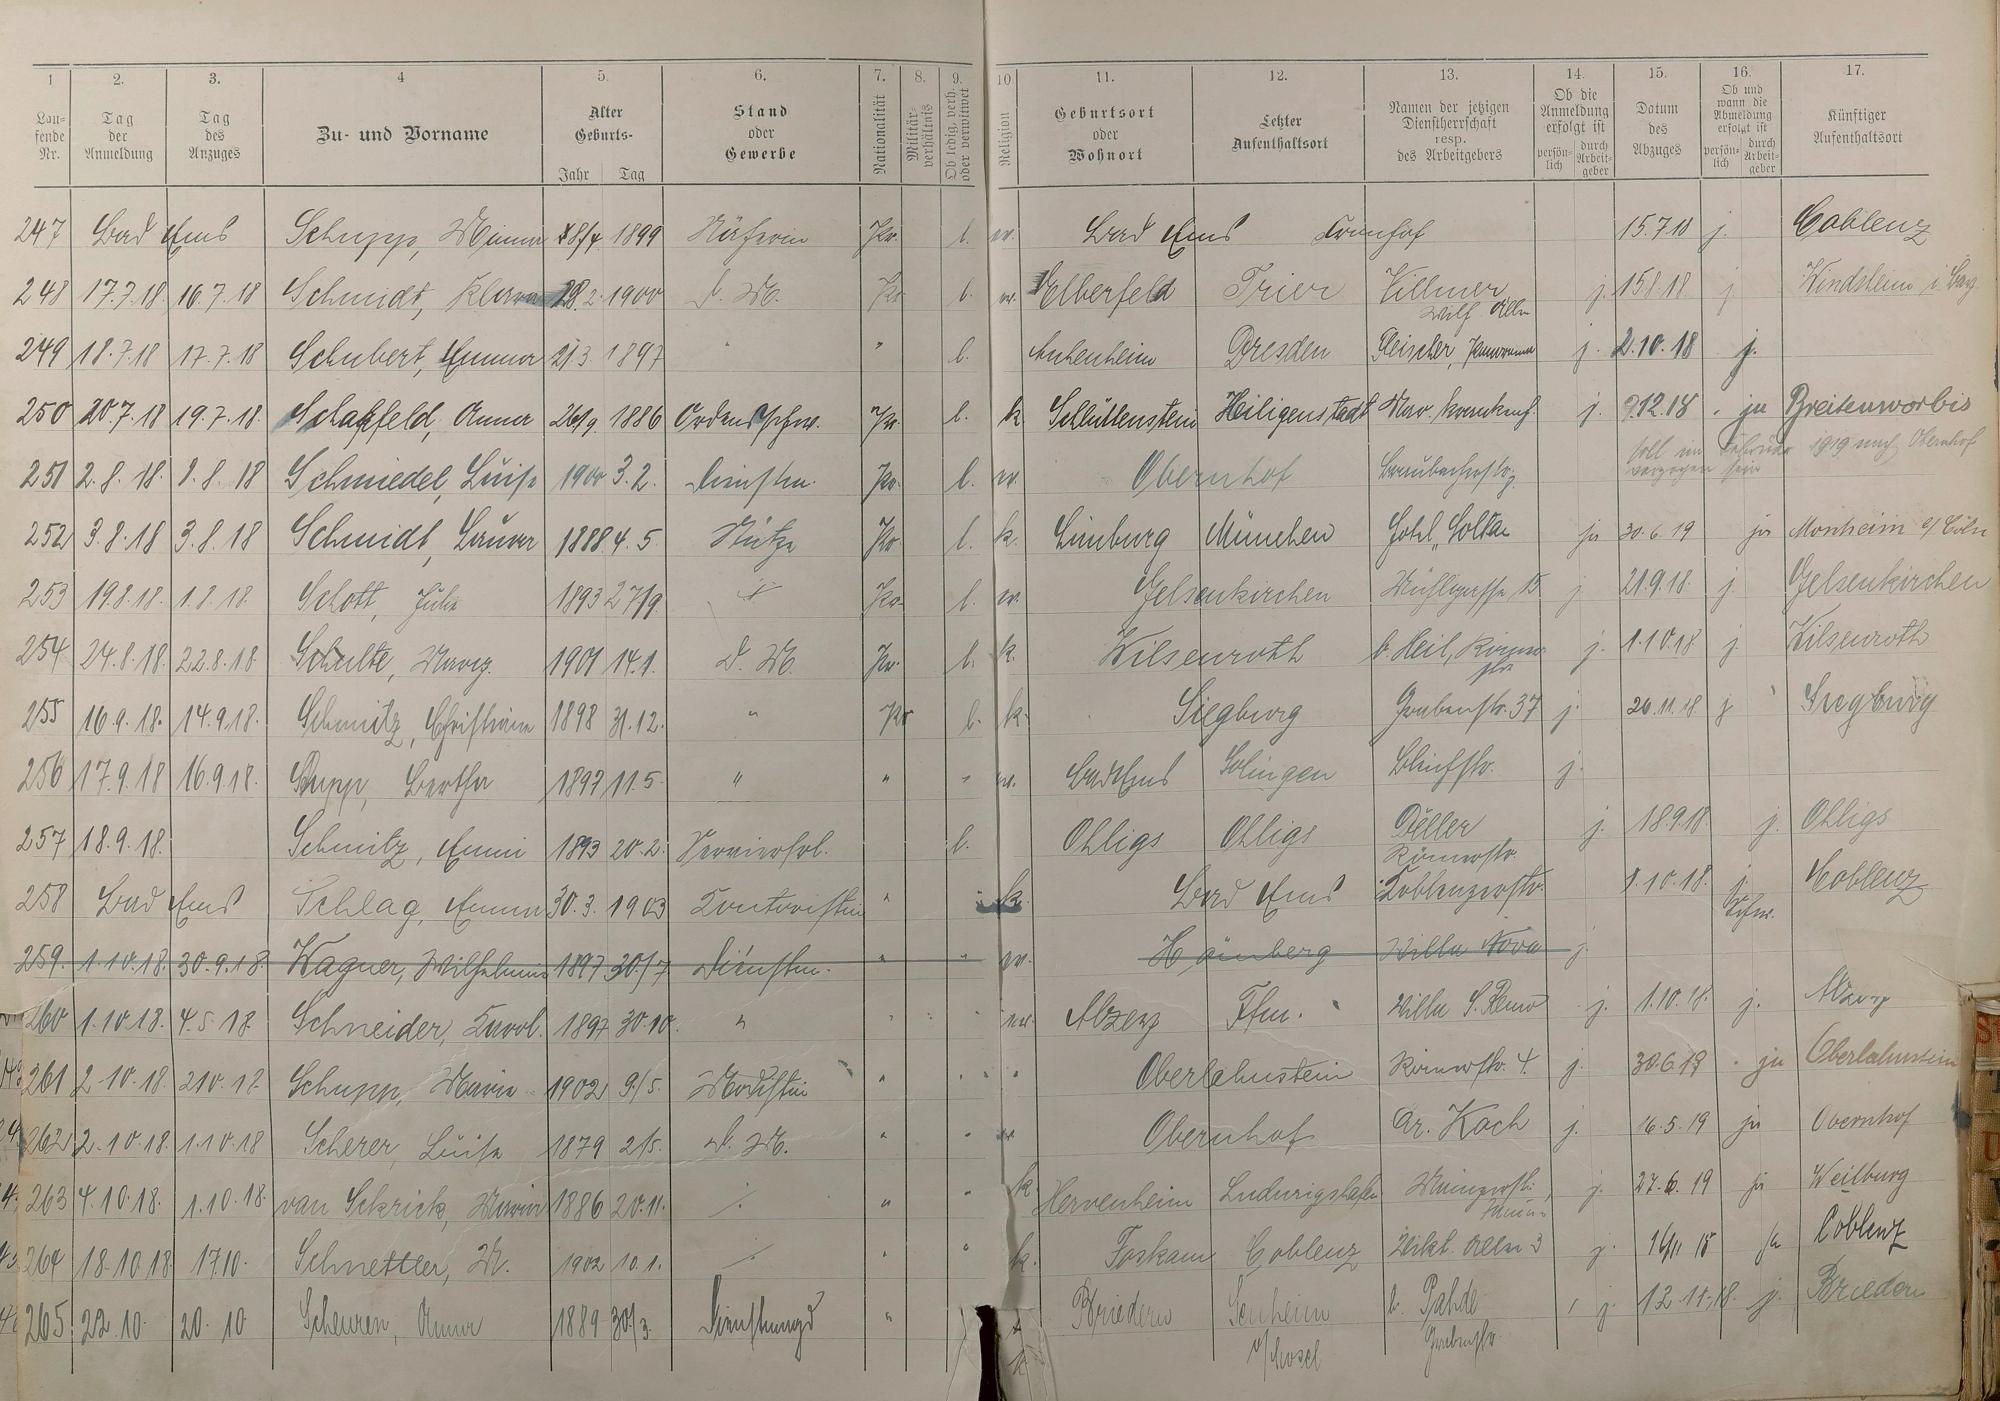 1 2. 3. 4 5. 6. 7. 8. 9. 10 11. 12. 13. 14. 15. 16. 17.
Lau-
fende
Nr.
Tag
der
Anmeldung
Tag
des
Anzuges
Zu- und Vorname
Alter
Geburts-
Jahr Tag
Stand
oder
Gewerbe
Nationalität
Militär-
verhältnis
Ob ledig, verh.
oder verwitwet
Religion
Geburtsort
oder
Wohnort
Letzter
Aufenthaltsort
Namen der jetzigen
Dienstherrschaft
resp.
des Arbeitgebers
Ob die
Anmeldung
erfolgt ist
persön-
lich
durch
Arbeit-
geber
Datum
des
Abzuges
Ob und
wann die
Abmeldung
erfolgt ist
persön-
lich
durch
Arbeit-
geber
Künftiger
Aufenthaltsort
247 Bad Ems Schupp, Minna 1899 Näherin Pr. l. ev. Bad Ems 15.7.18 j. Coblenz
248 17.7.18 16.7.18 Schmidt, Klara 28.2. 1900 D. M. Pr. l. ev. Elberfeld Trier Villmer j. 15.8.18 j. Windsheim i. Bay.
249 18.7.18 17.7.18 Schubert, Emma 21.3 1897 " " l. Dresden Fleischer, Panorama j. 2.10.18 j.
250 20.7.18 19.7.18. Anna 26/9. 1886 Ordensschw. Pr. l. k. Heiligenstadt Mar. Krankenh. j. 9.12.18 ja Breitenworbis
251 2.8.18. 1.8.18 Schmiedel, Luise 1900 3.2. Dienstm. Pr. l. ev. Obernhof soll im Februar 1919 nach Obernhof
verzogen sein
252 3.8.18 3.8.18 Schmidt, Laura 1888 4.5 Stütze Pr. l. k. Limburg München Hotel "Soltau ja 30.6.19 ja Monheim b/ Cöln
253 19.8.18. 1.8.18. Schott, Julie 1893 27/9. Pr. l. ev. Gelsenkirchen 15 j. 21.9.18. j. Gelsenkirchen
254 24.8.18. 22.8.18 Schulte, Marg. 1901 14.1. D. M. Pr. l. k. Wilsenroth b. Heil, Römer-
str. j. 1.10.18 j. Wilsenroth
255 16.9.18. 14.9.18. Schmitz, Christiane 1898 31.12. " Pr l. k. Siegburg Grabenstr. 37 j. 20.11.18 j Siegburg
256 17.9.18 16.9.18. Bertha 1897 11.5 " " " ev. Bad Ems Solingen Bleichstr. j.
257 18.9.18. Schmitz, Emmi 1893 20.2. Servierfrl. l. Ohligs Ohligs Döller
Römerstr. j. 18.9.18 j. Ohligs
258 Bad Ems Schlag, Emma 30.3. 1903 Kontoristin " k. Bad Ems Koblenzerstr. 1.10.18. j. Coblenz
259. 1.10.18. 30.9.18. Wagner, Wilhelmine 1897 30/7 Dienstm. " " ev. Villa Nova j.
260 1.10.18. 4.5.18. Schneider, Karol. 1897 30.10. " " ev. Alzey Ffm. Villa S. Remo j. 1.10.18. j. Alzey
261 2.10.18. 2.10.18. Schupp, Maria 1902 9/5. Modistin " " " Oberlahnstein Römerstr. 4. j. 30.6.19 ja Oberlahnstein
262 2.10.18. 1.10.18 Scherer, Luise 1879 2/5. D. M. " " ev Obernhof Dr. Koch j. 16.5.19 ja Obernhof
263 4.10.18. 1.10.18. van Schrick, Maria 1886 20.11. " " k. Hervenheim Ludwigshafen Mainzerstr. j. 27.6.19 ja Weilburg
264 18.10.18 17.10. Schnettler, M. 1902 10.1. " " k. Coblenz Vikt. Allee 3 j. 16/11 18 ja Coblenz
265 22.10. 20.10 Scheuren, Anna 1889 30/3. Dienstmagd " k Briedern Senheim
a/ Mosel b. Pahde
Grabenstr. j. 12.11.18. j. Briedern